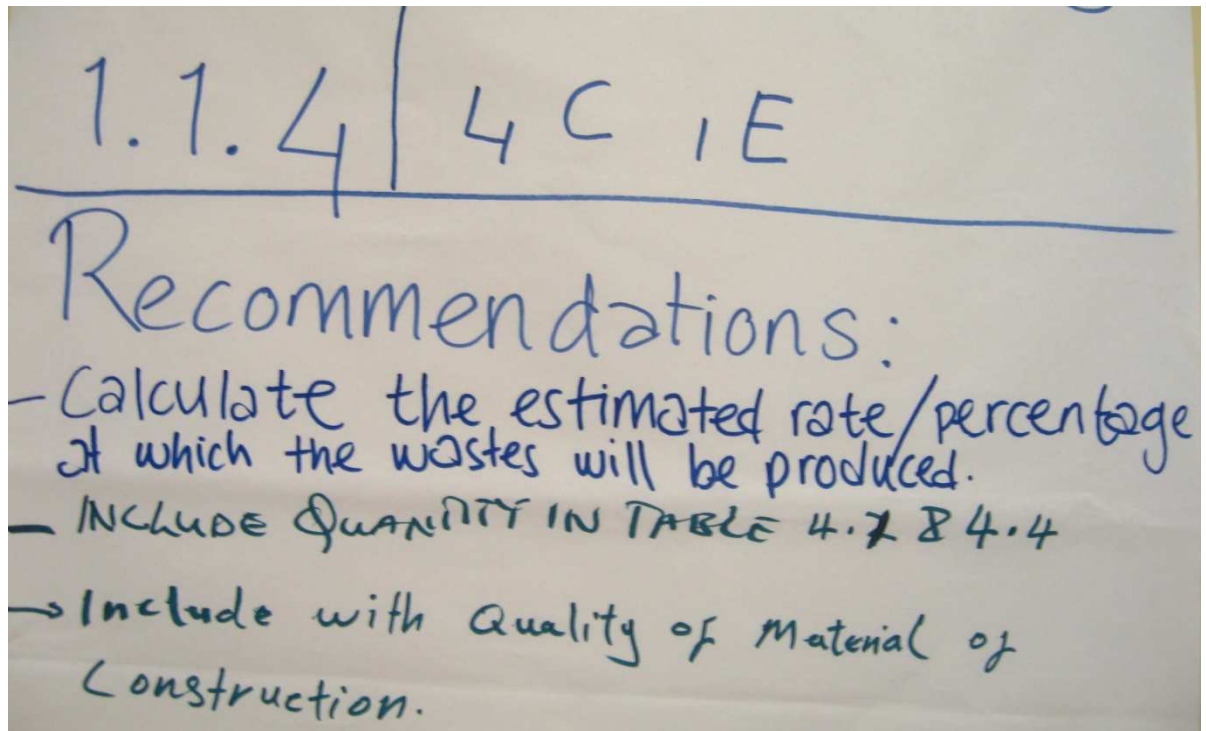 1.1.4 | 4 C , E
Recommendations:
- Calculate the estimated rate/percentage
at which the wastes will be produced.
- INCLUDE QUANTITY IN TABLE 4. & 4.4
→ Include with Quality of Material of
Construction.